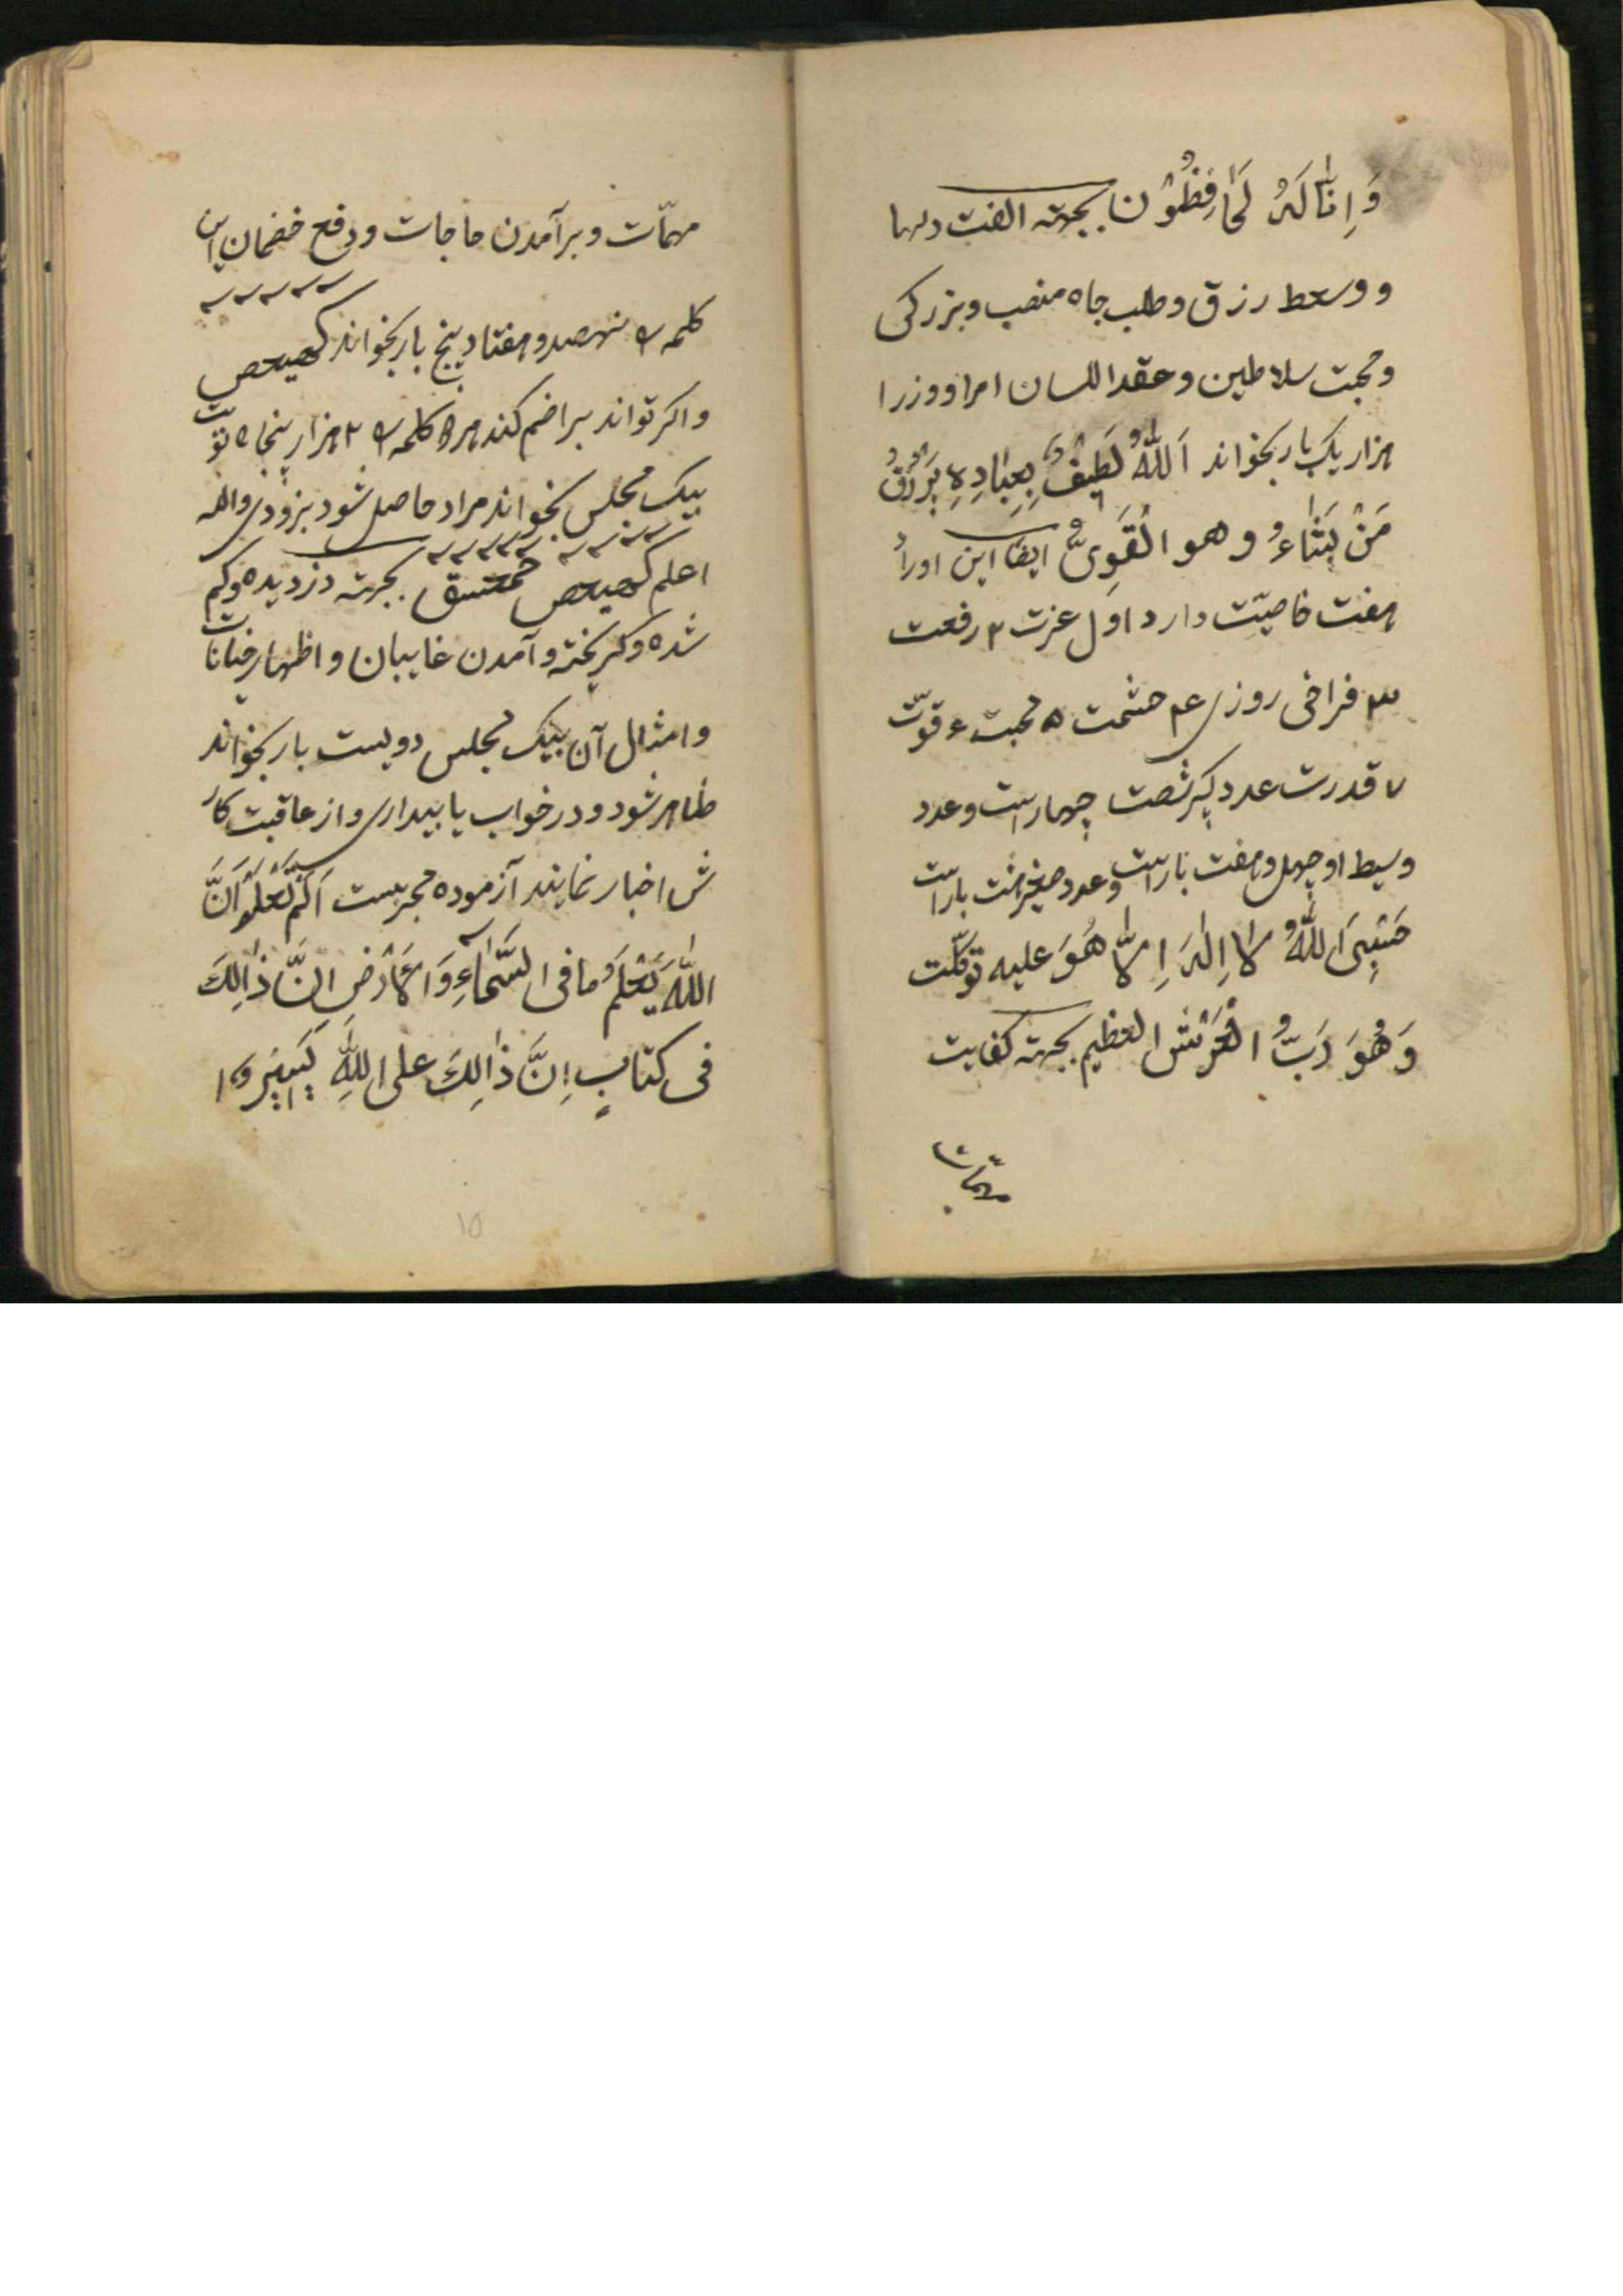 وَاِنّٰا لَهُ لَحٰافِظُوُن بجهته الفت دلها
و وسعط رزق و طلب جاه منصب و بزرکی
و محبت سلاطین و عقد اللسان امرا و وزرا
هزار یک بار بخواند اَللّٰهُ لَطیفٌ بِعِبٰادِهِ یَرْزُقُ
مَنْ یَشٰاءُ و هو الْقَوِیُّ ایضا این اورا
هفت خاصیّت دارد اوّل عزت ۲ رفعت
۳ فراخی روزی ۴ حشمت ۵ محبت ۶ قوّت
۷ قدرت عدد کبیر شصت چهار است و عدد
وسیط او چهل و هفت بار است و عدد صغیر هشت بار است
حَسْبِیَ اَللّٰهُ لاٰ اِلٰهَ اِلاّٰ هُوَ علیه توکّلت
وَ هُوَ رَبُّ الْعَرْشِ العظیم بجهته کفایت
مهمّات
مهمّات و برآمدن حاجات و دفع خصمان این
کلمه را نهصد و هفتاد پنج بار بخواند کهیعص
و اکر تواند براضم کند هر ۵ کلمه را ۲ هزار پنجاه نوبت
بیک مجلس بخواند مراد حاصل شود بزودی والله
اعلم کهیعص حمعسق بجهته دزدیده و کم
شده و کریخته و آمدن غایبان و اظهار خیانات
و امثال آن بیک مجلس دویست بار بخواند
ظاهر شود و در خواب یا بیداری و از عاقبت کار
ش اخبار نمایند آزموده مجربست اَلَمْ تَعْلَمْ اَنَّ
اللّٰهَ یَعْلَمُ ما فی السَّمٰاءِ وَ الْاَرْضِ انَّ ذٰالِكَ
فی کتابٍ اِنَّ ذٰالِكَ علی اللّٰهِ یَسیٖرٌ وا
۱۵